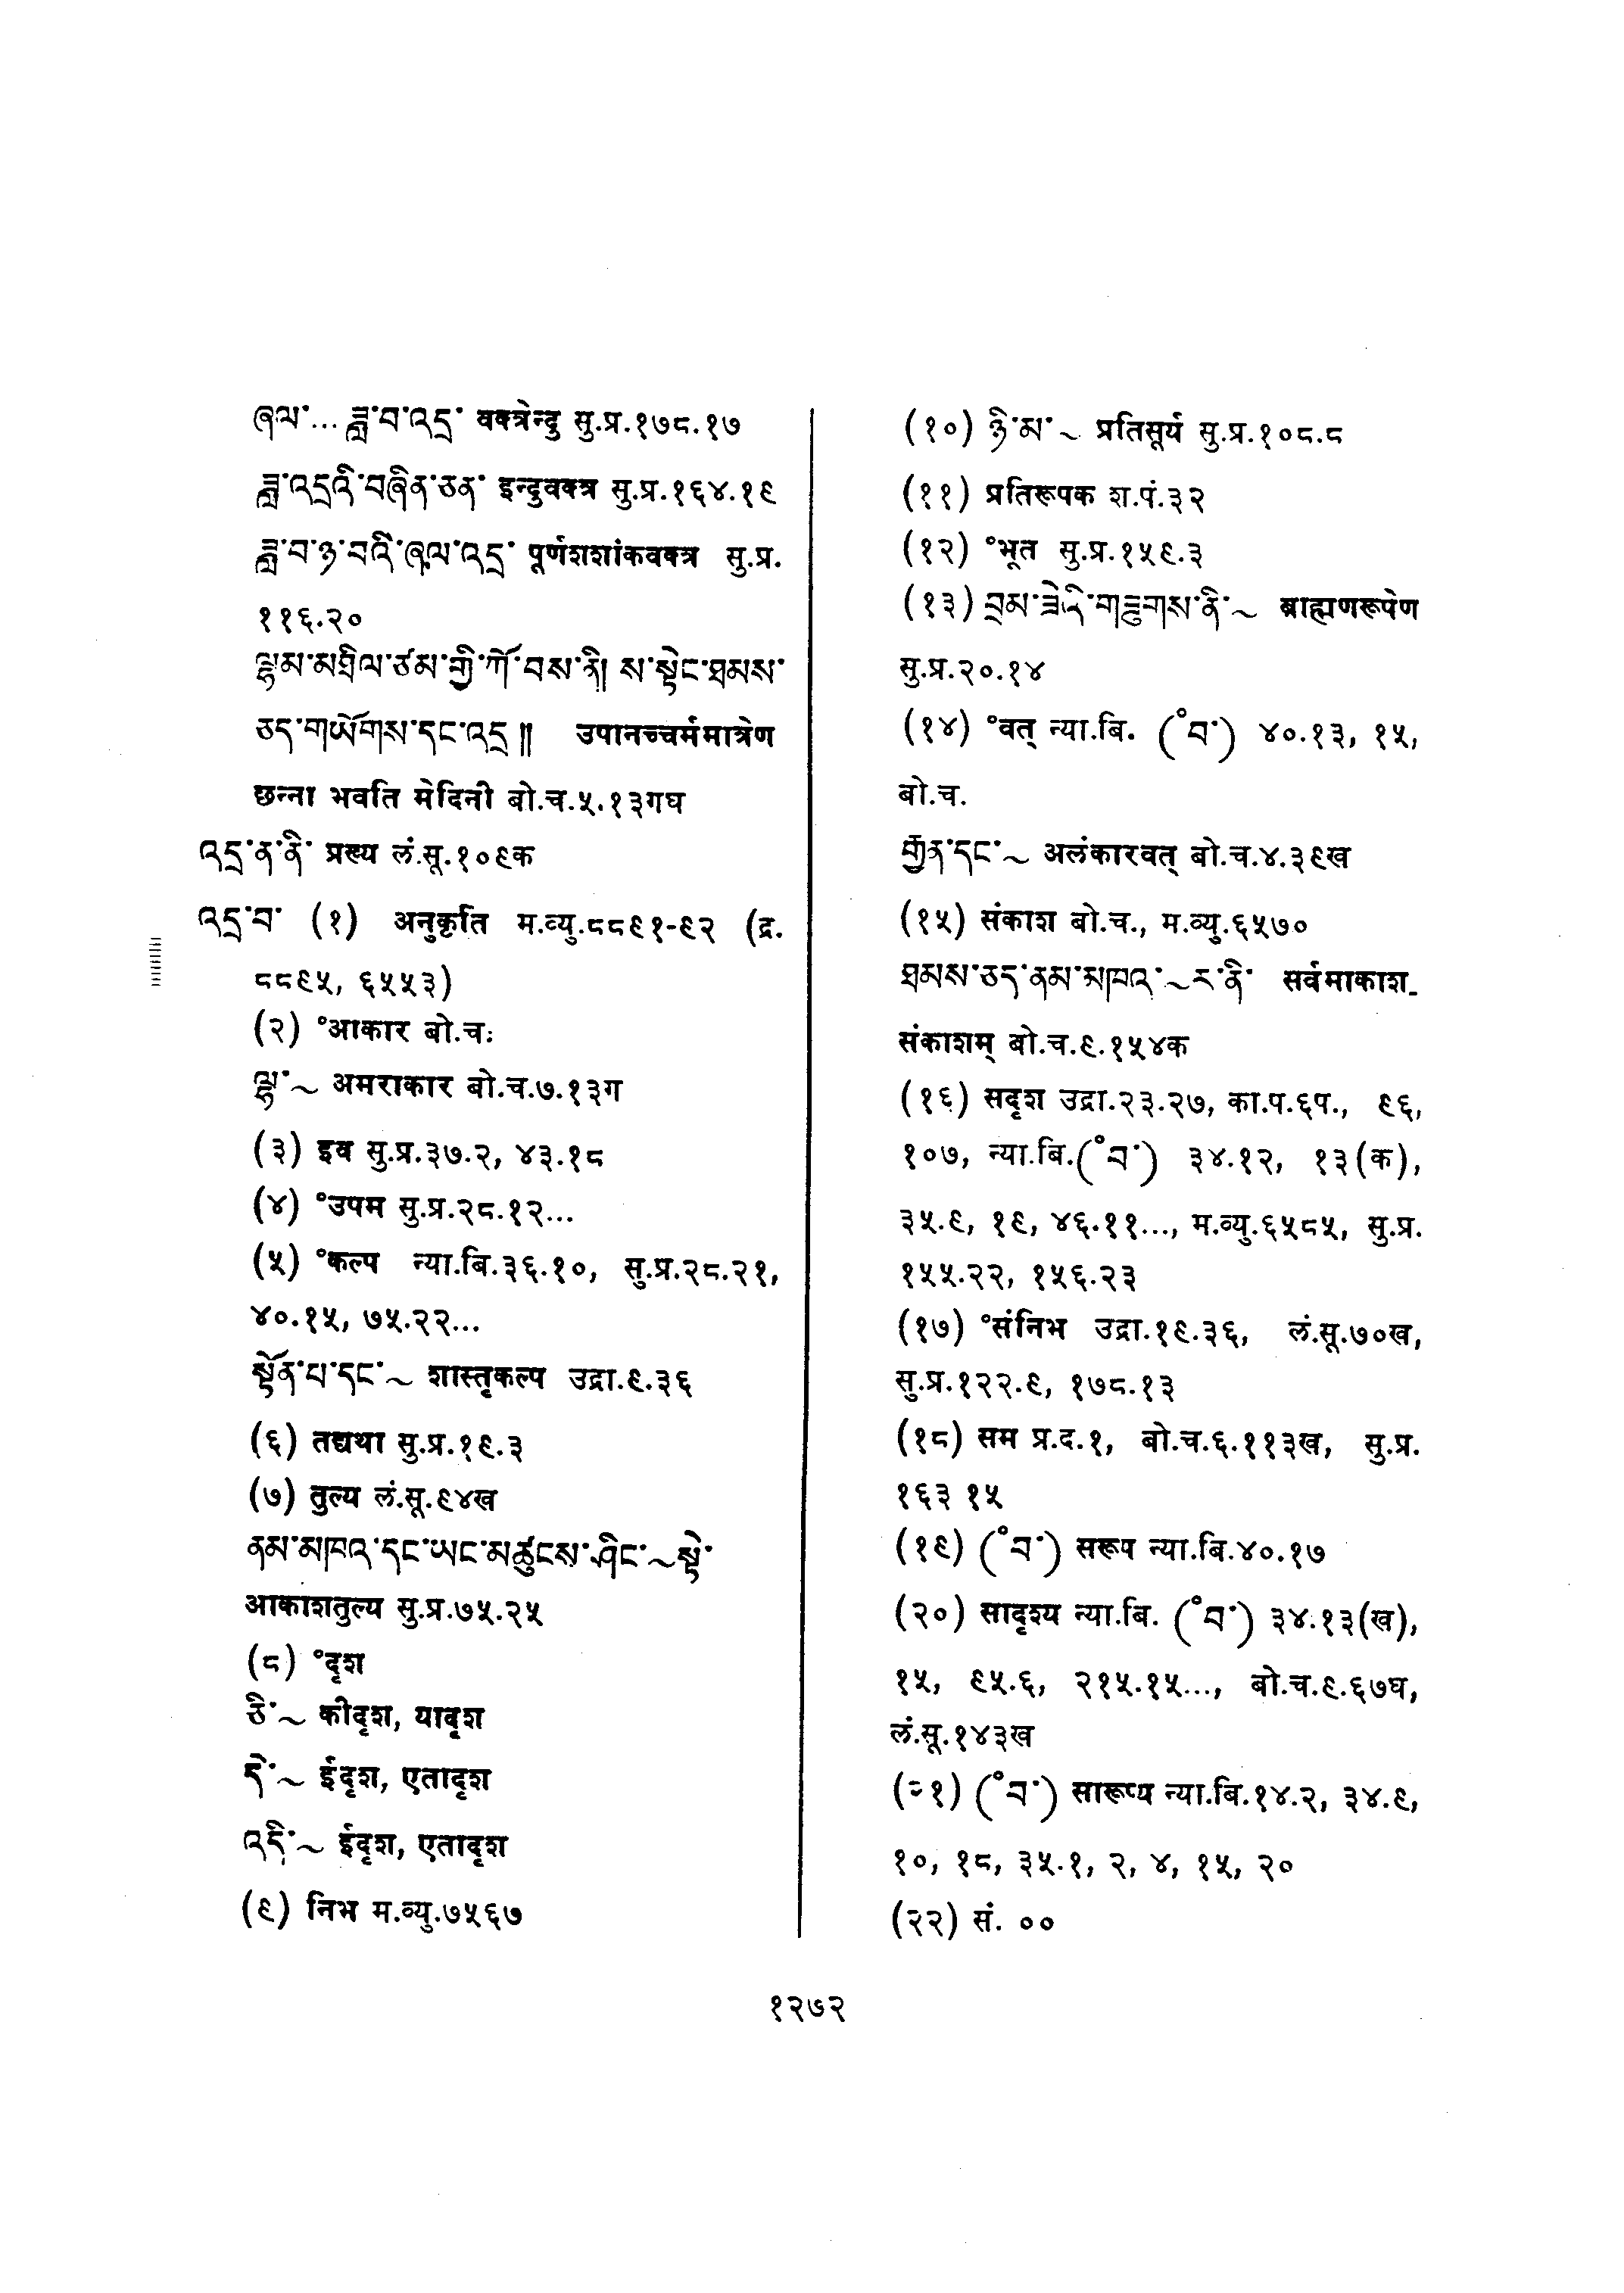 ཞལ་... ཟླ་བ་འདྲ་ वक्त्रेन्दु सु.प्र.१७८.१७
ཟླ་འདྲའི་བཞིན་ཅན་ इन्दुवक्त्र सु.प्र.१६४.१९
ཟླ་བ་ཉ་བའི་ཞལ་འདྲ་ पूर्णशशांकवक्त्र सु.प्र.
११६.२०
ལྷམ་མཐིལ་ཙམ་གྱི་ཀོ་བས་ནི། ས་སྟེང་ཐམས་
ཅད་གཡོགས་དང་འདྲ༎ उपानच्चर्ममात्रेण
छन्ना भवति मेदिनी बो.च.५.१३गघ
འདྲ་ན་ནི་ प्रख्य लं.सू.१०९क
འདྲ་བ་ (१) अनुकृति म.व्यु.८८९१-९२ (द्र.
८८९५, ६५५३)
(२) °आकार बो.चः
ལྷ་~ अमराकार बो.च.७.१३ग
(३) इव सु.प्र.३७.२, ४३.१८
(४) °उपम सु.प्र.२८.१२...
(५) °कल्प न्या.बि.३६.१०, सु.प्र.२८.२१,
४०.१५, ७५.२२...
སྟོན་པ་དང་~ शास्तृकल्प उद्रा.९.३६
(६) तद्यथा सु.प्र.१९.३
(७) तुल्य लं.सू.९४ख
ནམ་མཁའ་དང་ཡང་མཚུངས་ཤིང་~སྟེ་
आकाशतुल्य सु.प्र.७५.२५
(८) °दृश
ཅི་~ कीदृश, यादृश
དེ་~ ईदृश, एतादृश
འདི་~ ईदृश, एतादृश
(९) निभ म.व्यु.७५६७
(१०) ཉི་མ་~ प्रतिसूर्य सु.प्र.१०८.८
(११) प्रतिरूपक श.पं.३२
(१२) °भूत सु.प्र.१५९.३
(१३) བྲམ་ཟེའི་གཟུགས་ནི་~ ब्राह्मणरूपेण
सु.प्र.२०.१४
(१४) °वत् न्या.बि. (°བ་) ४०.१३, १५,
बो.च.
རྒྱན་དང་~ अलंकारवत् बो.च.४.३९ख
(१५) संकाश बो.च., म.व्यु.६५७०
ཐམས་ཅད་ནམ་མཁའ་~ར་ནི་ सर्वमाकाश-
संकाशम् बो.च.९.१५४क
(१६) सदृश उद्रा.२३.२७, का.प.६प., ९६,
१०७, न्या.बि.(°བ་) ३४.१२, १३(क),
३५.९, १९, ४६.११..., म.व्यु.६५८५, सु.प्र.
१५५.२२, १५६.२३
(१७) °संनिभ उद्रा.१९.३६, लं.सू.७०ख,
सु.प्र.१२२.९, १७८.१३
(१८) सम प्र.द.१, बो.च.६.११३ख, सु.प्र.
१६३ १५
(१९) (°བ་) सरूप न्या.बि.४०.१७
(२०) सादृश्य न्या.बि. (°བ་) ३४.१३(ख),
१५, ९५.६, २१५.१५..., बो.च.९.६७घ,
लं.सू.१४३ख
(२१) (°བ་) सारूप्य न्या.बि.१४.२, ३४.९,
१०, १८, ३५.१, २, ४, १५, २०
(२२) सं. ००
१२७२